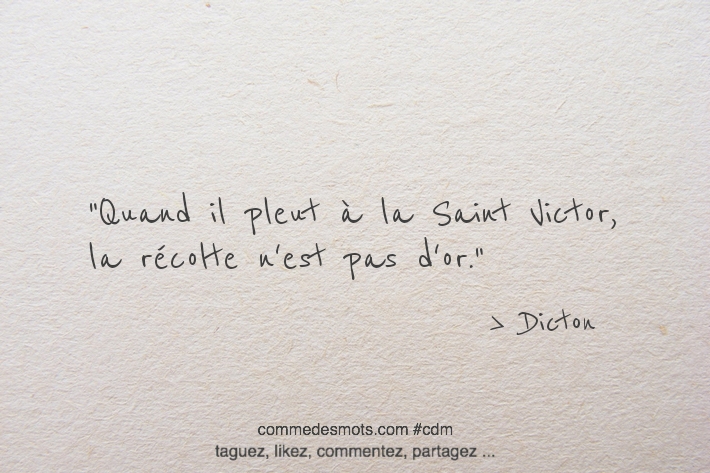 "Quand il pleut à la Saint Victor,
la récolte n'est pas d'or."
> Dicton
commedesmots.com #cdm
taguez, likez, commentez, partagez ...